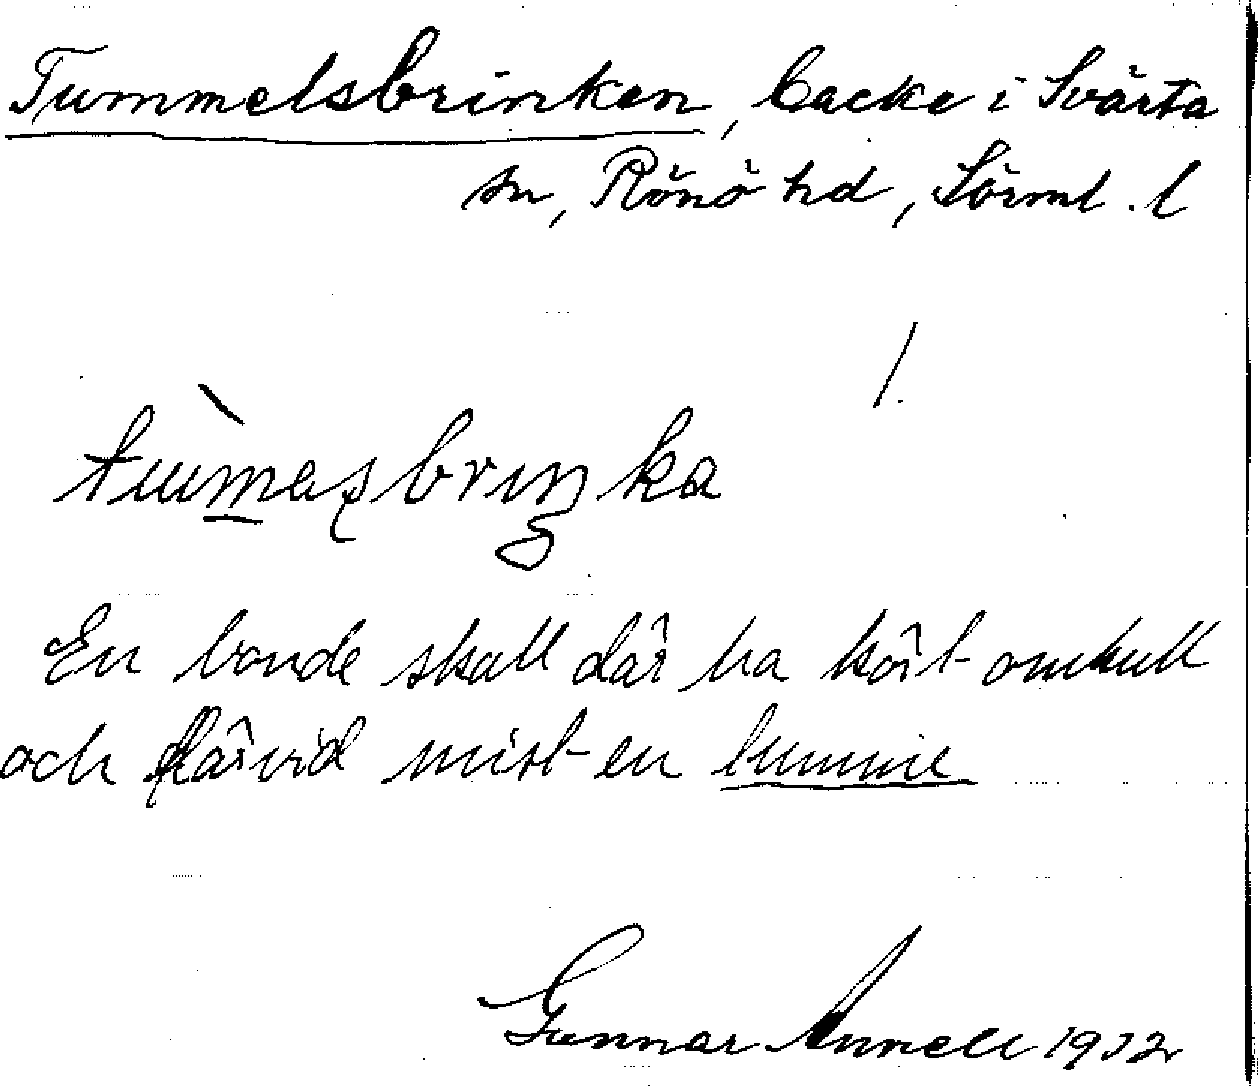 Tummelsbrinken, backe i Svärta
sn, Rönö hd, Sörml. l
En bonde skall där ha kört omkull
och därvid mist en tumme
Gunnar Annell 1932